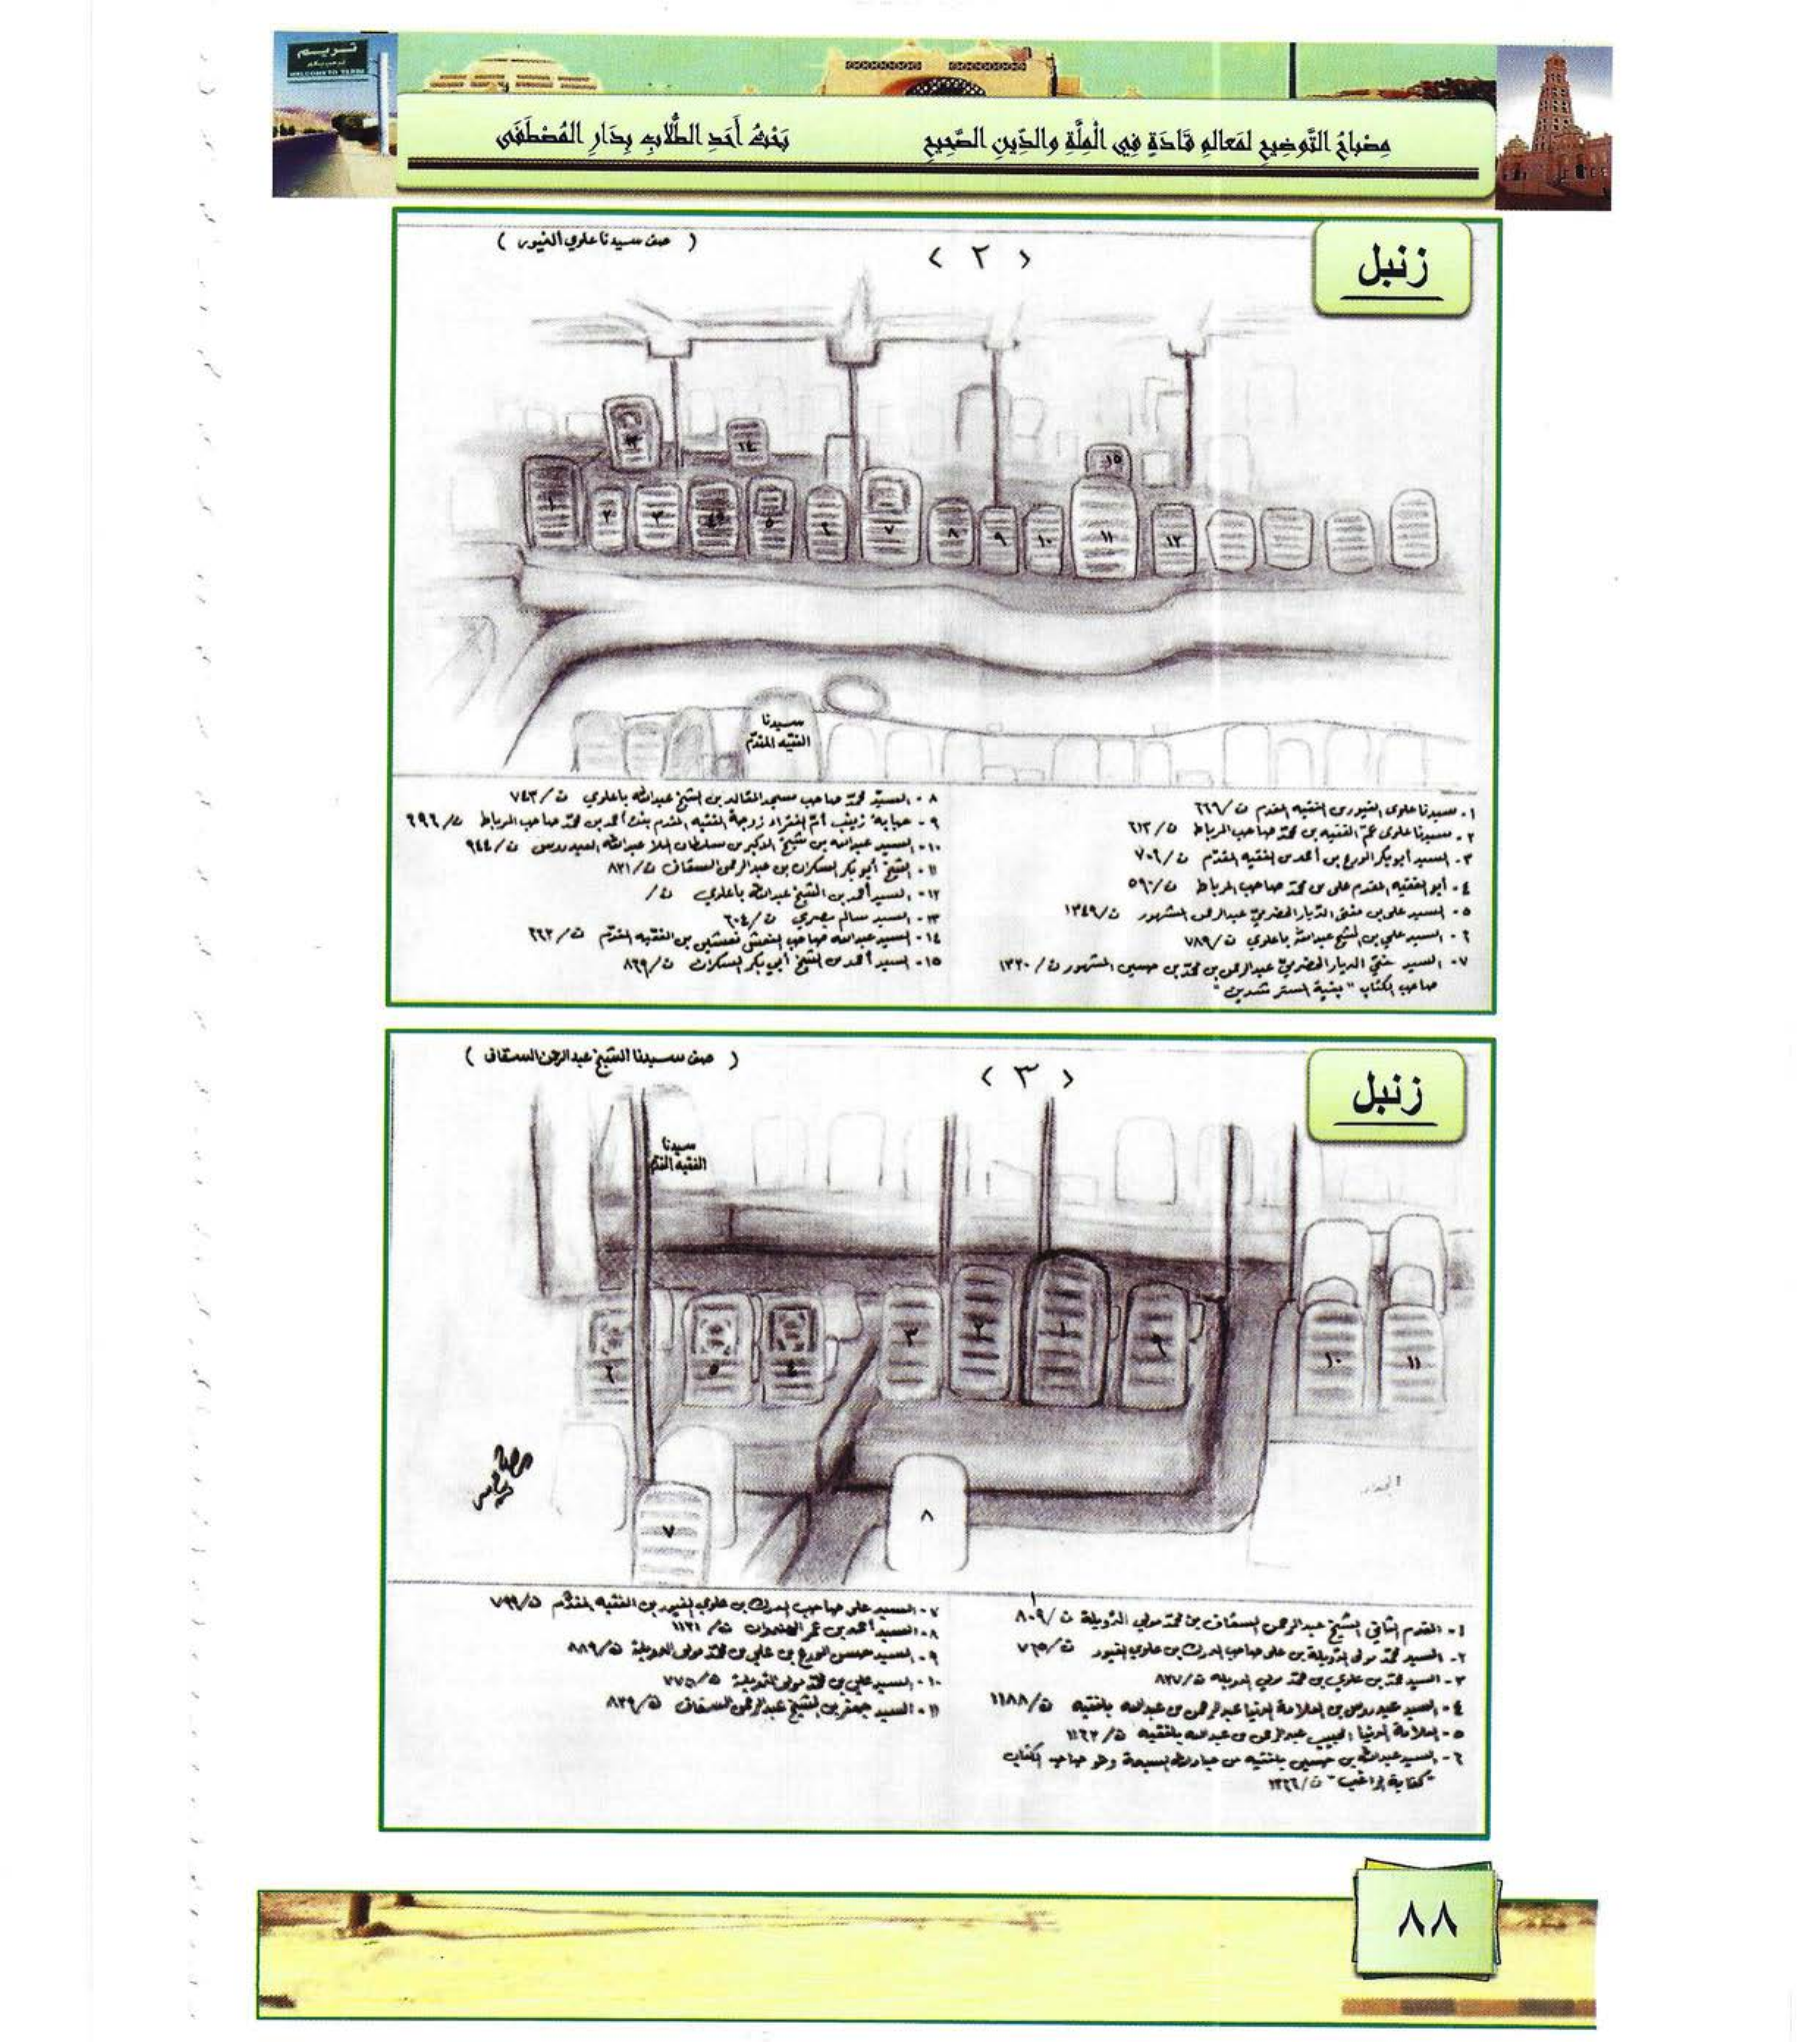 تريم
WELCOME TO TARIM
مِصْبَاحُ التَّوضِيحِ لمَعالمِ قَادَةٍ فِي الْمِلَّةِ والدِّينِ الصَّحِيحِ
بَحْثُ أَحَدِ الطُّلَّابِ بِدَارِ المُصْطَفَى
زنبل
< ٢ >
( صف سيدنا علوي الغيور )
١٣
١٤
١٥
١
٢
٣
٤
٥
٦
٧
٨
٩
١٠
١١
١٢
سيدنا
الفقيه المقدّم
١- سيدنا علوي الغيور بن الفقيه المقدم ت/٦٦٩
٢- سيدنا علوي عمّ الفقيه بن محمّد صاحب المرباط ت/٦١٣
٣- السيد أبوبكر الورع بن أحمد بن الفقيه المقدّم ت/٧٠٦
٤- أبو الفقيه المقدم علي بن محمّد صاحب المرباط ت/٥٩٠
٥- السيد علي بن مفتي الدّيار الحضرميّة عبدالرحمن المشهور ت/١٣٤٩
٦- السيد علي بن الشيخ عبدالله باعلوي ت/٧٨٩
٧- السيد مفتي الديار الحضرميّة عبدالرحمن بن محمّد بن حسين المشهور ت/١٣٢٠
صاحب الكتاب "بغية المسترشدين"
٨- السيّد محمّد صاحب مسجد المقالد بن الشيخ عبدالله باعلوي ت/٧٤٣
٩- حبابة زينب أمّ الفقراء زوجة الفقيه المقدم بنت أحمد بن محمّد صاحب المرباط ت/٦٩٦
١٠- السيد عبدالله بن شيخ الأكبر بن سلطان الملا عبدالله العيدروس ت/٩٤٤
١١- الشيخ أبو بكر السكران بن عبدالرحمن السقاف ت/٨٢١
١٢- السيد أحمد بن الشيخ عبدالله باعلوي ت/
١٣- السيد سالم بصري ت/٦٠٤
١٤- السيد عبدالله صاحب النعش نعشين بن الفقيه المقدّم ت/٦٦٣
١٥- السيد أحمد بن الشيخ أبي بكر السكران ت/٨٦٩
زنبل
< ٣ >
( صف سيدنا الشيخ عبدالرحمن السقاف )
سيدنا
الفقيه المقدّم
٦
٥
٤
٣
٢
١
٩
١٠
١١
٧
٨
١- المقدم الثاني الشيخ عبدالرحمن السقاف بن محمّد مولى الدّويلة ت/٨٠٩
٢- السيد محمّد مولى الدّويلة بن علي صاحب الدرك بن علوي الغيور ت/٧٦٥
٣- السيد محمّد بن علوي بن محمّد مولى الدويلة ت/٨٢٧
٤- السيد عيدروس بن العلامة الدنيا عبدالرحمن بن عبدالله بلفقيه ت/١١٨٨
٥- العلامة الدنيا الحبيب عبدالرحمن بن عبدالله بلفقيه ت/١١٦٢
٦- السيد عبدالله بن حسين بلفقيه من عبادلة السبعة وهو صاحب الكتاب
"كفاية الراغب" ت/١٢٦٦
٧- السيد علي صاحب الدرك بن علوي الغيور بن الفقيه المقدّم
٨- السيد أحمد بن عمر الهندوان ت/١١٢١
٩- السيد حسن الورع بن علي بن محمّد مولى الدويلة ت/٨٨٩
١٠- السيد علي بن محمّد مولى الدّويلة
١١- السيد جعفر بن الشيخ عبدالرحمن السقاف ت/٨٣٩
٨٨